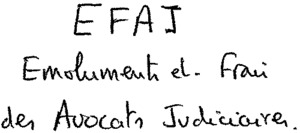 EFAJ
Emoluments et Frais
des Avocats Judiciaires.